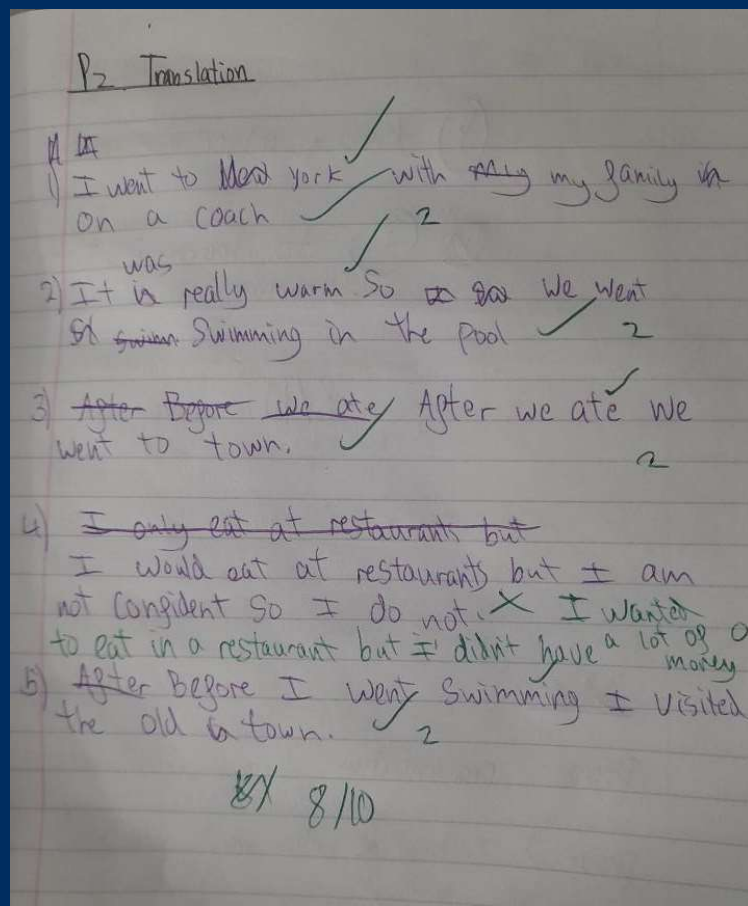 P2 Translation
1) I went to York with my family
on a coach 2
was
2) It is really warm so we went
swimming in the pool 2
3) After Before we ate After we ate we
went to town. 2
4) I only eat at restaurants but
I would eat at restaurants but I am
not confident so I do not. X I wanted
to eat in a restaurant but I didn't have a lot of money 0
5) After Before I went swimming I visited
the old town. 2
8/10